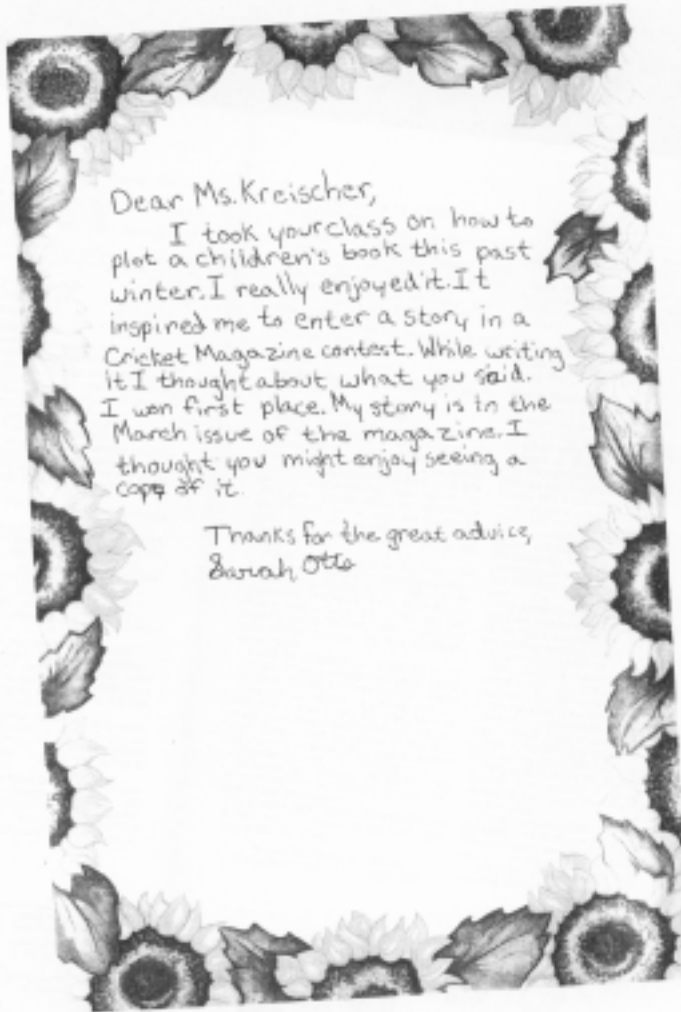 Dear Ms. Kreischer,
I took your class on how to
plot a children's book this past
winter. I really enjoyed it. It
inspired me to enter a story in a
Cricket Magazine contest. While writing
it I thought about what you said.
I won first place. My story is in the
March issue of the magazine. I
thought you might enjoy seeing a
copy of it.
Thanks for the great advice,
Sarah Otto